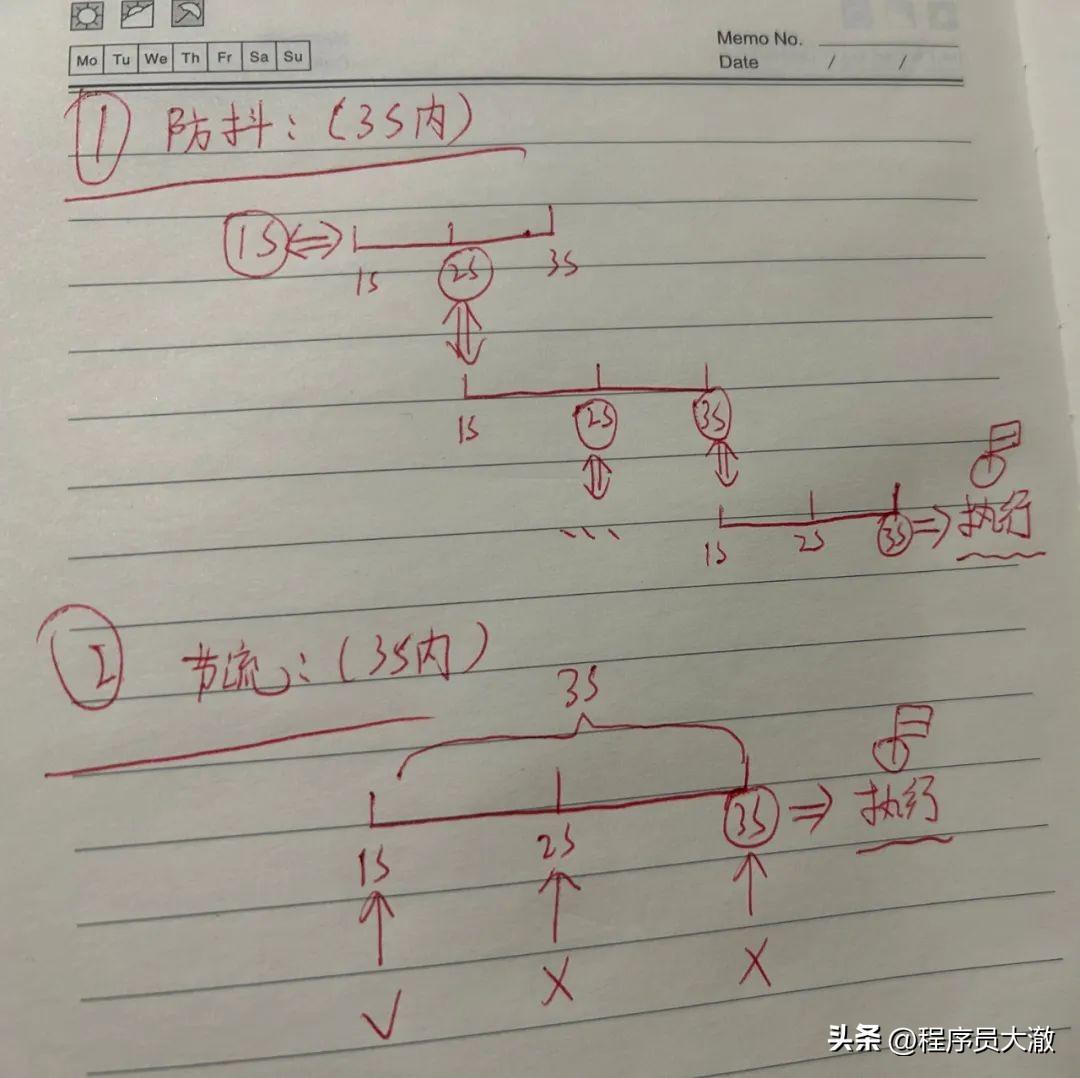 Mo Tu We Th Fr Sa Su
Memo No.
Date / /
1 防抖：(3S内)
1S
1S 2S 3S
1S 2S 3S
...
1S 2S 3S 执行
2 节流：(3S内)
3S
1S 2S 3S 执行
√ X X
头条 @程序员大澈